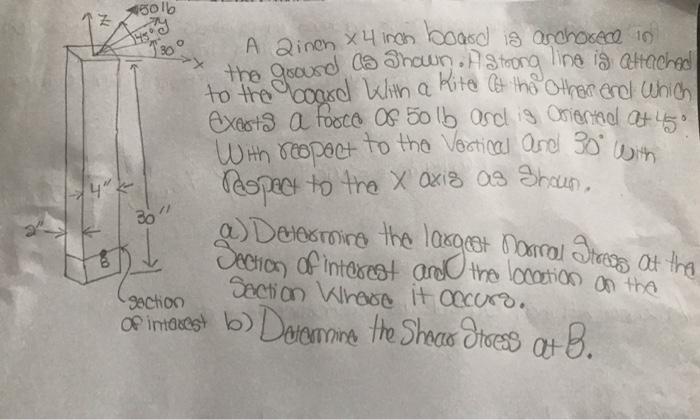 50 lb
Z
y
45°
30°
x
A 2 inch x 4 inch board is anchored in
the ground as shown. A strong line is attached
to the board with a kite at the other end which
exerts a force of 50 lb and is oriented at 45°
with respect to the vertical and 30° with
respect to the X axis as shown.
4"
2"
30"
B
section
of interest
a) Determine the largest normal stress at the
section of interest and the location on the
section where it occurs.
b) Determine the shear stress at B.